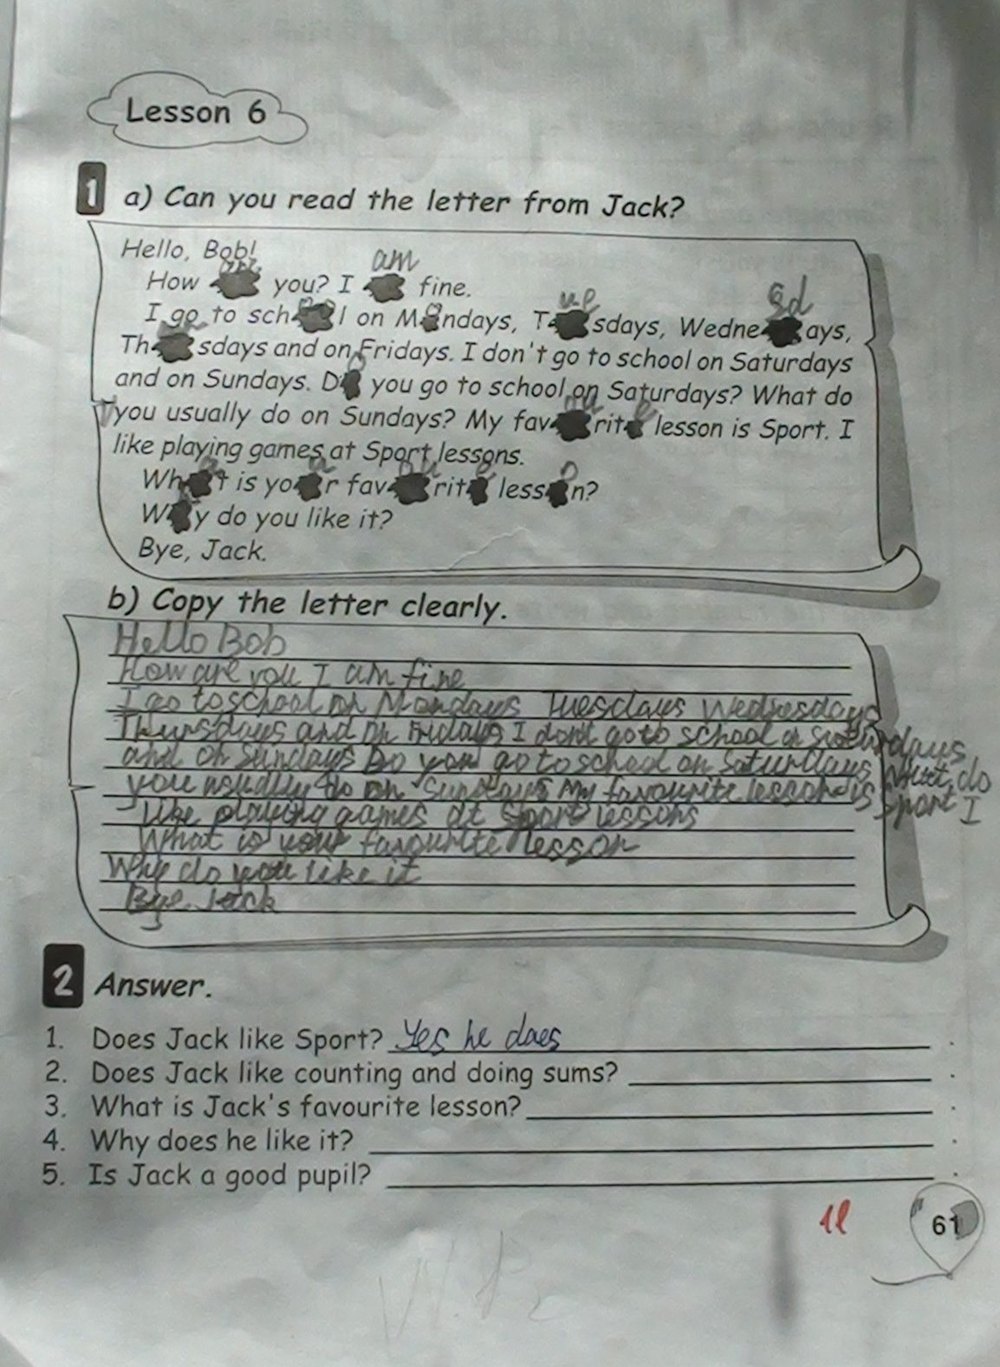 Lesson 6
1 a) Can you read the letter from Jack?
Hello, Bob!
are am
How you? I fine.
ue sd
I go to sch l on M ndays, T sdays, Wedne ays,
Th sdays and on Fridays. I don't go to school on Saturdays
and on Sundays. D you go to school on Saturdays? What do
you usually do on Sundays? My fav rit lesson is Sport. I
like playing games at Sport lessons.
a u ou e o
Wh t is yo r fav rit less n?
W y do you like it?
Bye, Jack.
b) Copy the letter clearly.
Hello Bob
How are you I am fine
I go to school on Mondays Tuesdays Wednesdays
Thursdays and on Fridays I dont go to school on Saturdays
and on Sundays Do you go to school on Saturdays What do
you usually do on Sundays My favourite lesson is Sport I
like playing games at Sport lessons
What is your favourite lesson
Why do you like it
Bye Jack
2 Answer.
1. Does Jack like Sport? Yes he does .
2. Does Jack like counting and doing sums? .
3. What is Jack's favourite lesson? .
4. Why does he like it? .
5. Is Jack a good pupil? .
61